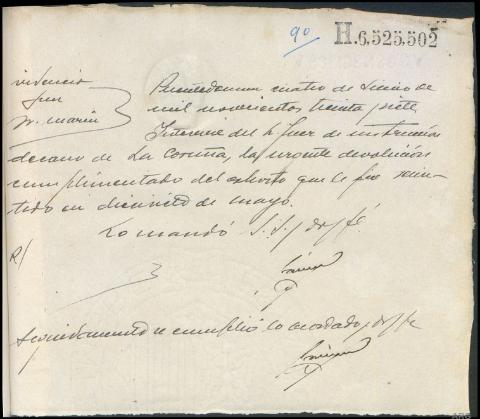 90
H.6,525,502
videncia
Juez
Sr. Marin
Puentedeume cuatro de Junio de
mil novecientos treinta y siete
Interese del Sr Juez de instrucción
decano de La Coruña, la urgente devolución
cumplimentado del exhorto que le fue remi-
tido en diecisiete de mayo.
Lo mandó S.S. y doy fé.
R/
Seguidamente se cumplió lo acordado, doy fe